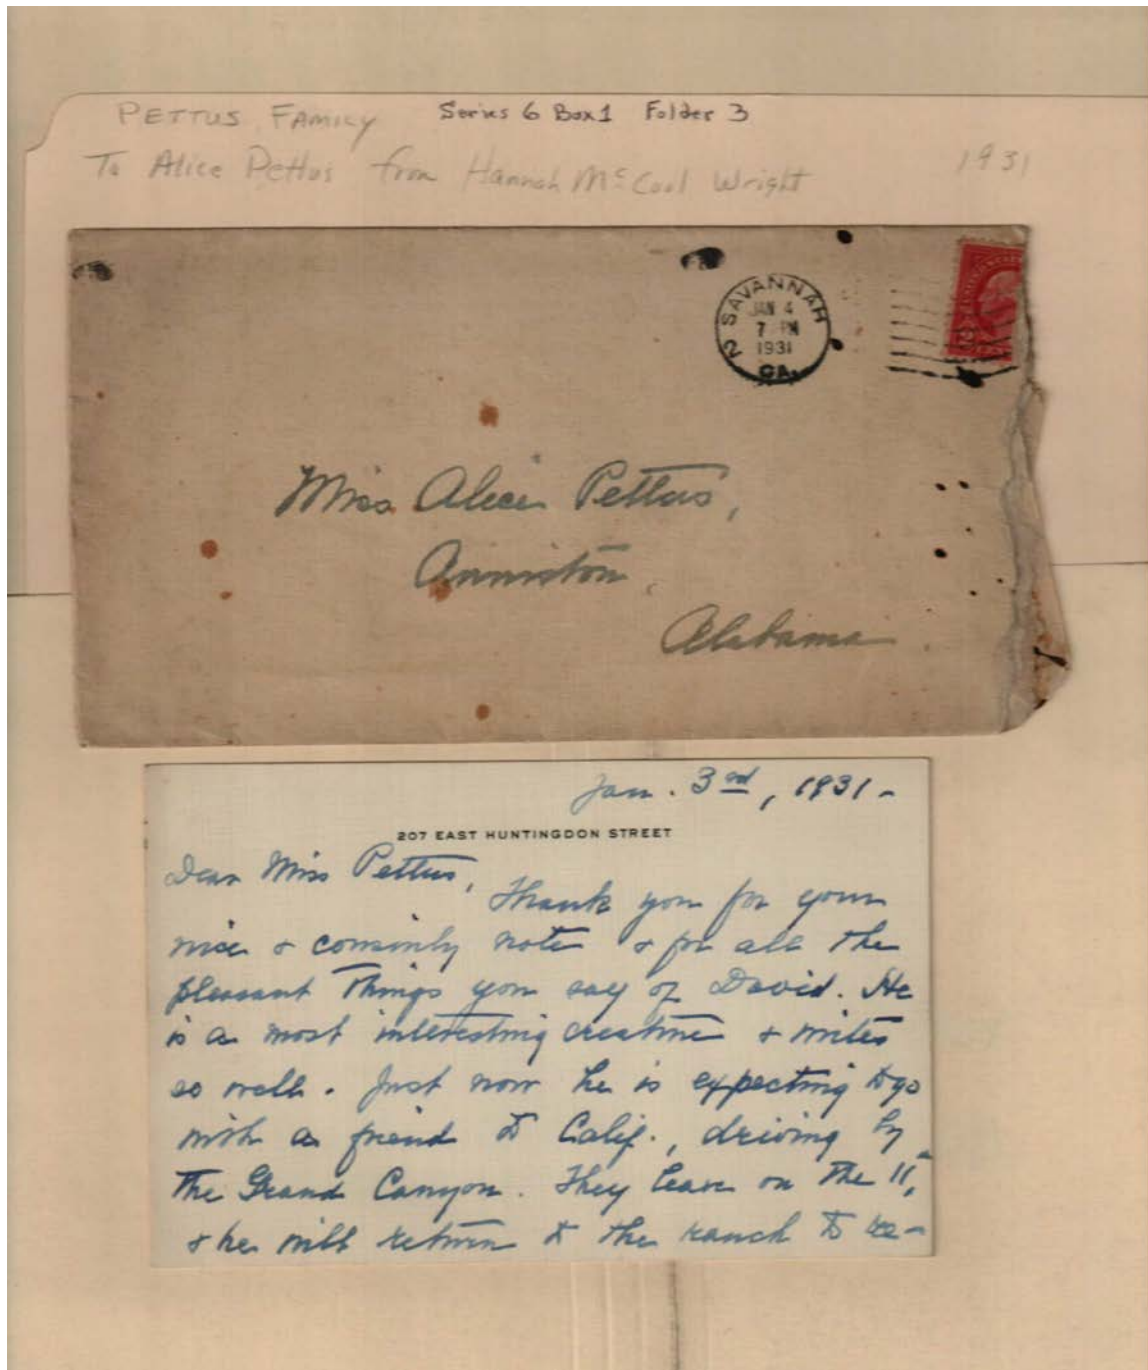 PETTUS FAMILY Series 6 Box 1 Folder 3
To Alice Pettus from Hannah McCool Wright 1931
2 SAVANNAH
JAN 4
7 PM
1931
GA.
Miss Alice Pettus,
Anniston,
Alabama.
Jan. 3rd, 1931-
207 EAST HUNTINGDON STREET
Dear Miss Pettus,
Thank you for your
nice & cousinly note & for all the
pleasant things you say of David. He
is a most interesting creature & writes
so well. Just now he is expecting to go
with a friend to Calif., driving by
the Grand Canyon. They leave on the 11,
& he will return to the ranch to re-